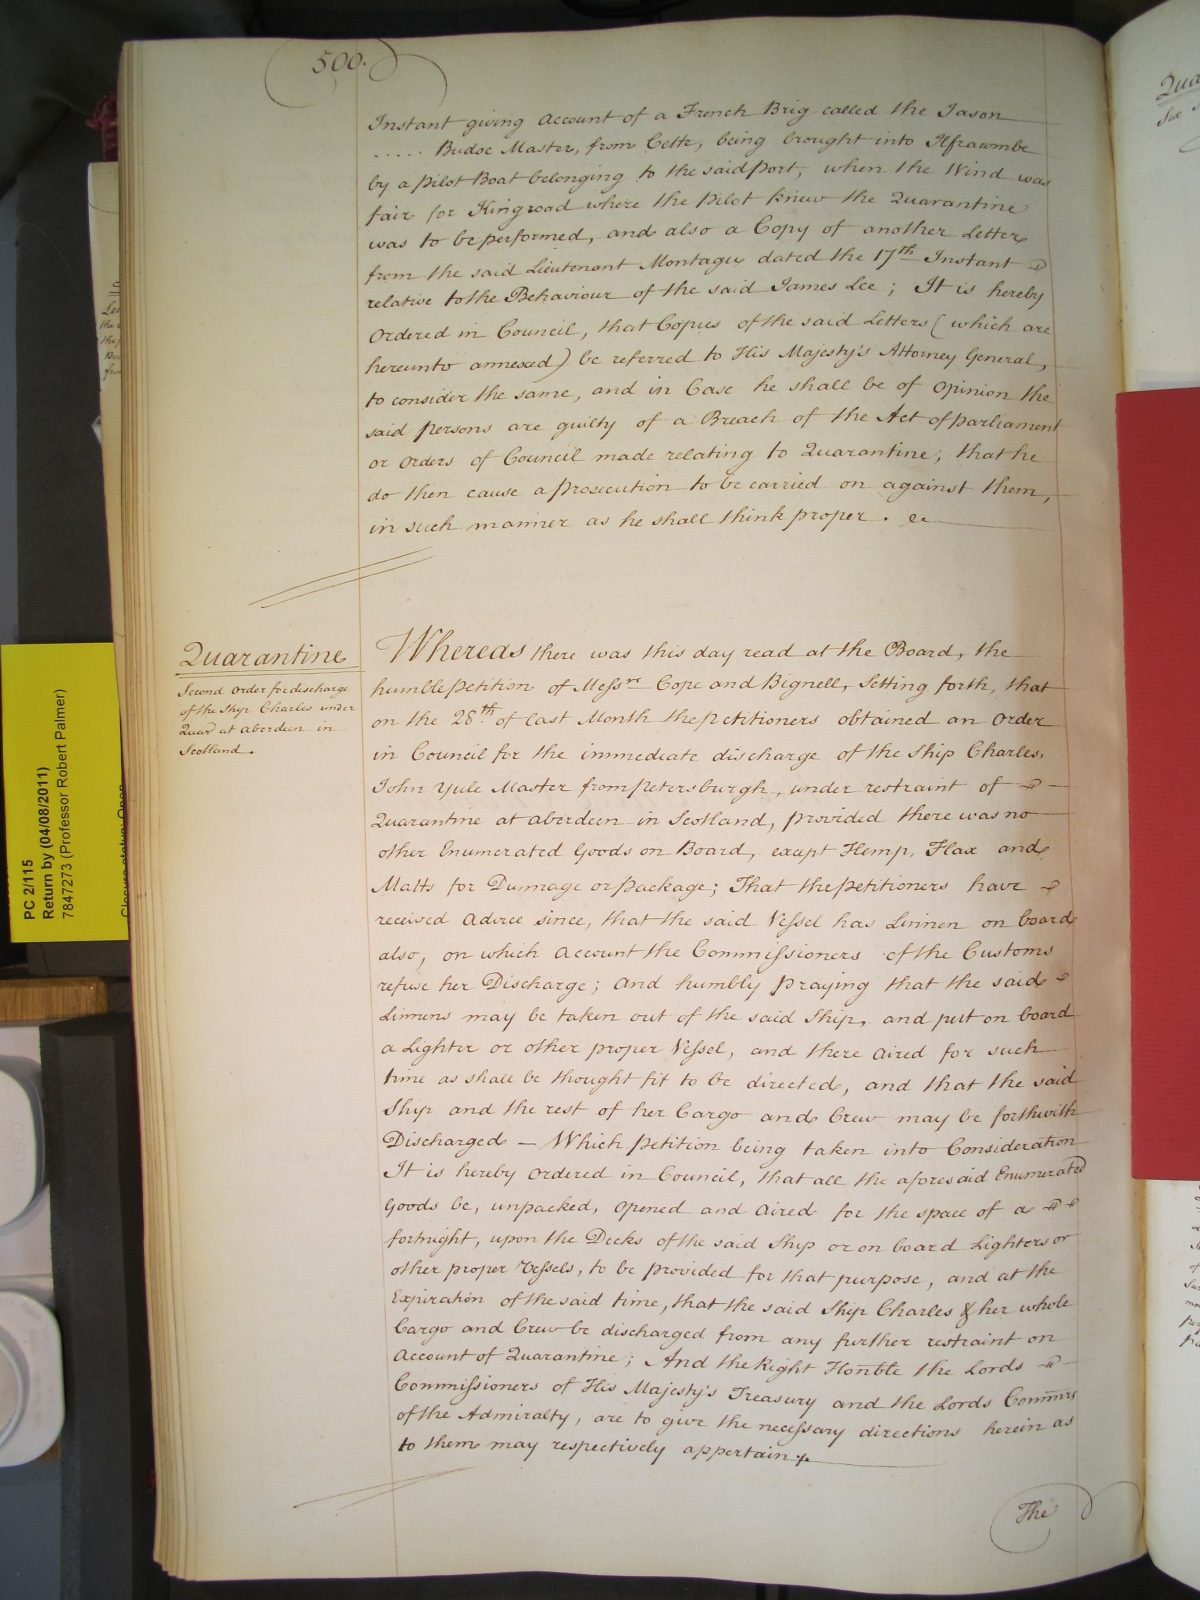 500.
Instant giving Account of a French Brig called the Jason
..... Budoc Master, from Cette, being brought into Ilfracombe
by a Pilot Boat belonging to the said Port, when the Wind was
fair for Kingroad where the Pilot knew the Quarantine
was to be performed, and also a Copy of another Letter
from the said Lieutenant Montagu dated the 17th Instant
relative to the Behaviour of the said James Lee; It is hereby
Ordered in Council, that Copies of the said Letters (which are
hereunto annexed) be referred to His Majesty's Attorney General,
to consider the same, and in Case he shall be of Opinion the
said persons are guilty of a Breach of the Act of parliament
or Orders of Council made relating to Quarantine; that he
do then cause a prosecution to be carried on against them,
in such manner as he shall think proper.
Quarantine
Second Order for discharge
of the Ship Charles under
Quar at aberdeen in
Scotland.
Whereas there was this day read at the Board, the
humble petition of Messrs Cope and Bignell, Setting forth, that
on the 28th of last Month the petitioners obtained an Order
in Council for the immediate discharge of the Ship Charles,
John Yule Master from petersburgh, under restraint of
Quarantine at aberdeen in Scotland, provided there was no
other Enumerated Goods on Board, except Hemp, Flax and
Matts for Dunnage or package; That the petitioners have
received Advice since, that the said Vessel has Linnen on board
also, on which Account the Commissioners of the Customs
refuse her Discharge; and humbly praying that the said
Linnens may be taken out of the said Ship, and put on board
a Lighter or other proper Vessel, and there Aired for such
time as shall be thought fit to be directed, and that the said
Ship and the rest of her Cargo and Crew may be forthwith
Discharged — Which petition being taken into Consideration
It is hereby Ordered in Council, that all the aforesaid Enumerated
Goods be, unpacked, Opened and Aired for the space of a
fortnight, upon the Decks of the said Ship or on board Lighters or
other proper Vessels, to be provided for that purpose, and at the
Expiration of the said time, that the said Ship Charles & her whole
Cargo and Crew be discharged from any further restraint on
Account of Quarantine; And the Right Honble the Lords
Commissioners of His Majesty's Treasury and the Lords Commrs
of the Admiralty, are to give the necessary directions herein as
to them may respectively appertain.
The
PC 2/115
Return by (04/08/2011)
7847273 (Professor Robert Palmer)
Closure status: Open